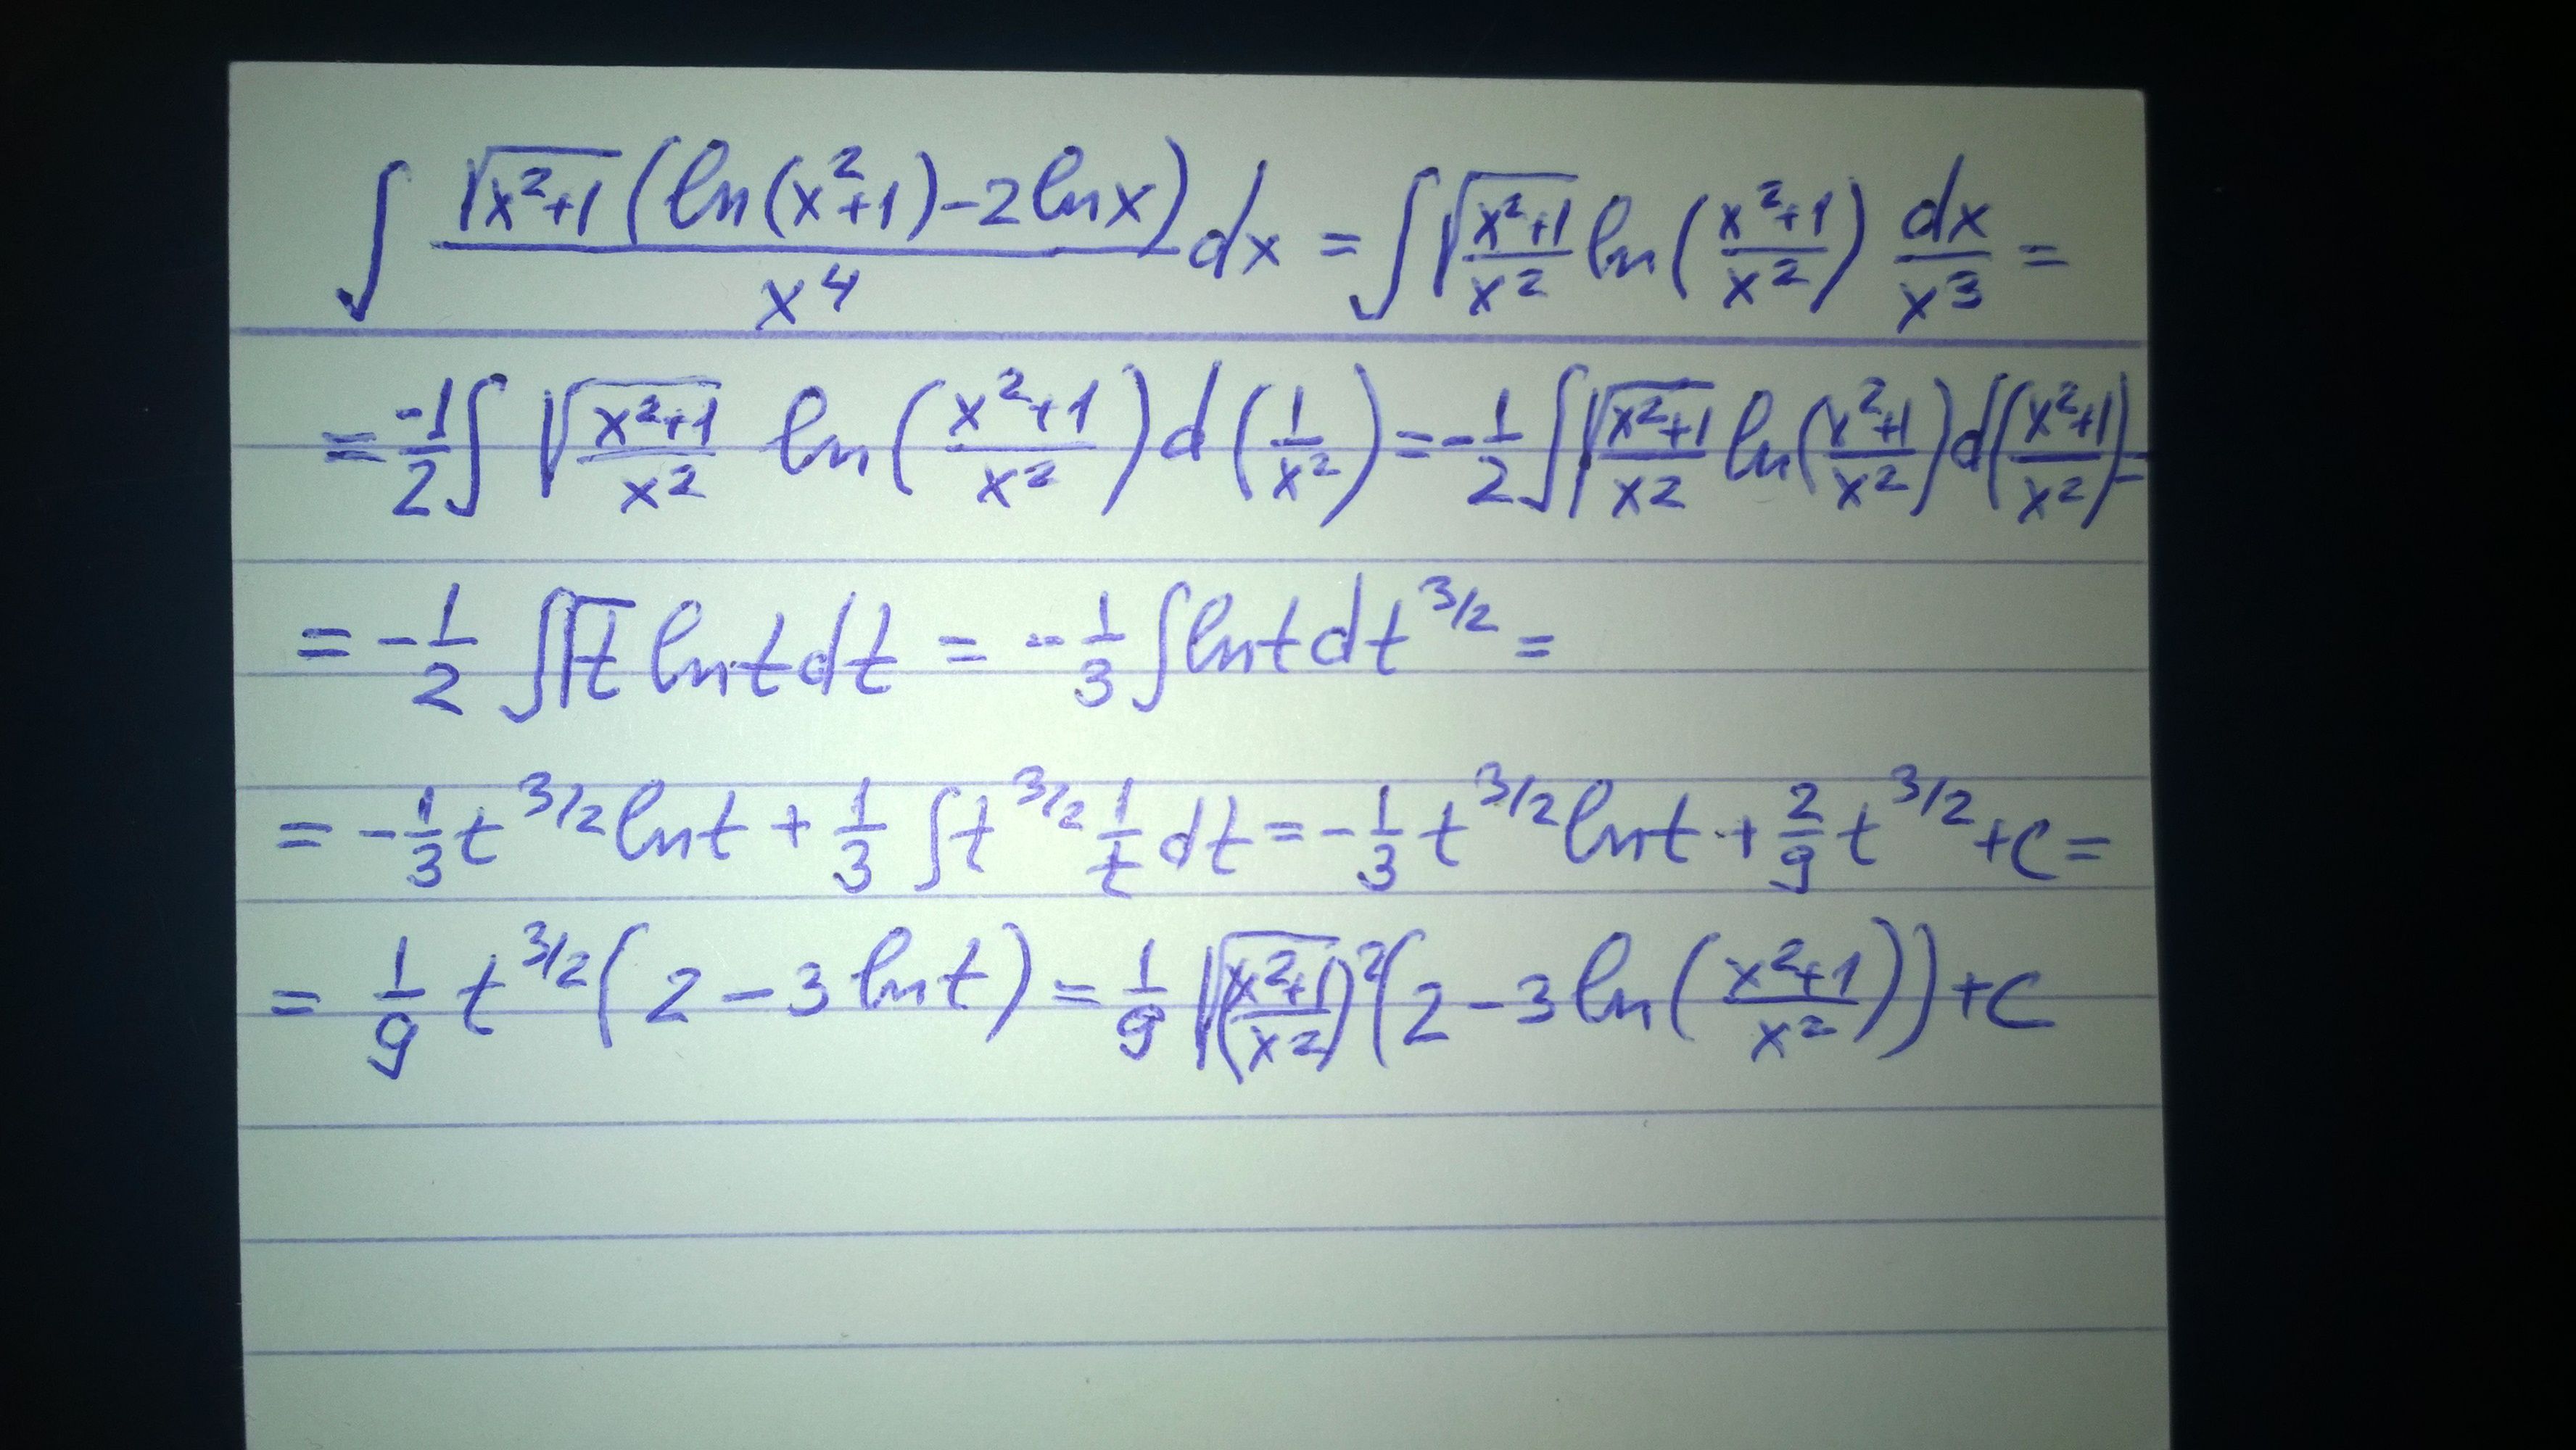 ∫ √(x²+1) (ln(x²+1) - 2 ln x) / x⁴ dx = ∫ √((x²+1)/x²) ln((x²+1)/x²) dx/x³ =
= -1/2 ∫ √((x²+1)/x²) ln((x²+1)/x²) d(1/x²) = -1/2 ∫ √((x²+1)/x2) ln((x²+1)/x²) d((x²+1)/x²) =
= -1/2 ∫ √t ln t dt = -1/3 ∫ ln t dt^(3/2) =
= -1/3 t^(3/2) ln t + 1/3 ∫ t^(3/2) 1/t dt = -1/3 t^(3/2) ln t + 2/9 t^(3/2) + C =
= 1/9 t^(3/2) (2 - 3 ln t) = 1/9 √((x²+1)/x2)² (2 - 3 ln((x²+1)/x²)) + C